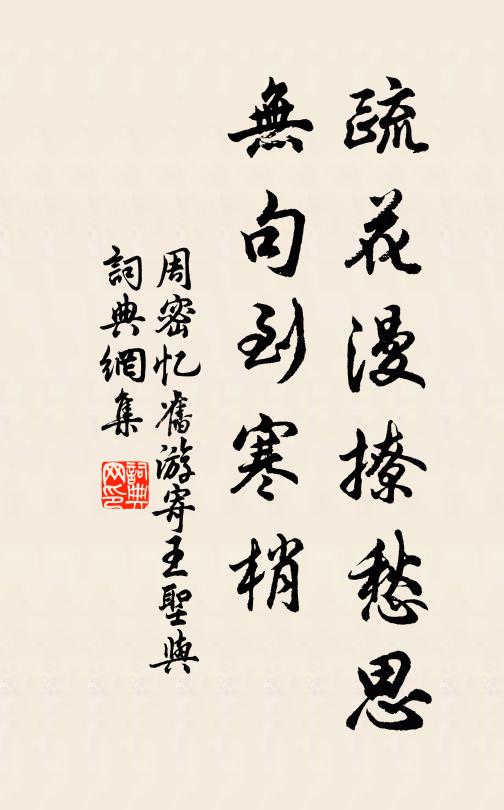 疏花漫撩愁思
無句到寒梢
周密忆舊游寄王聖與
詞典網集
詞典网印